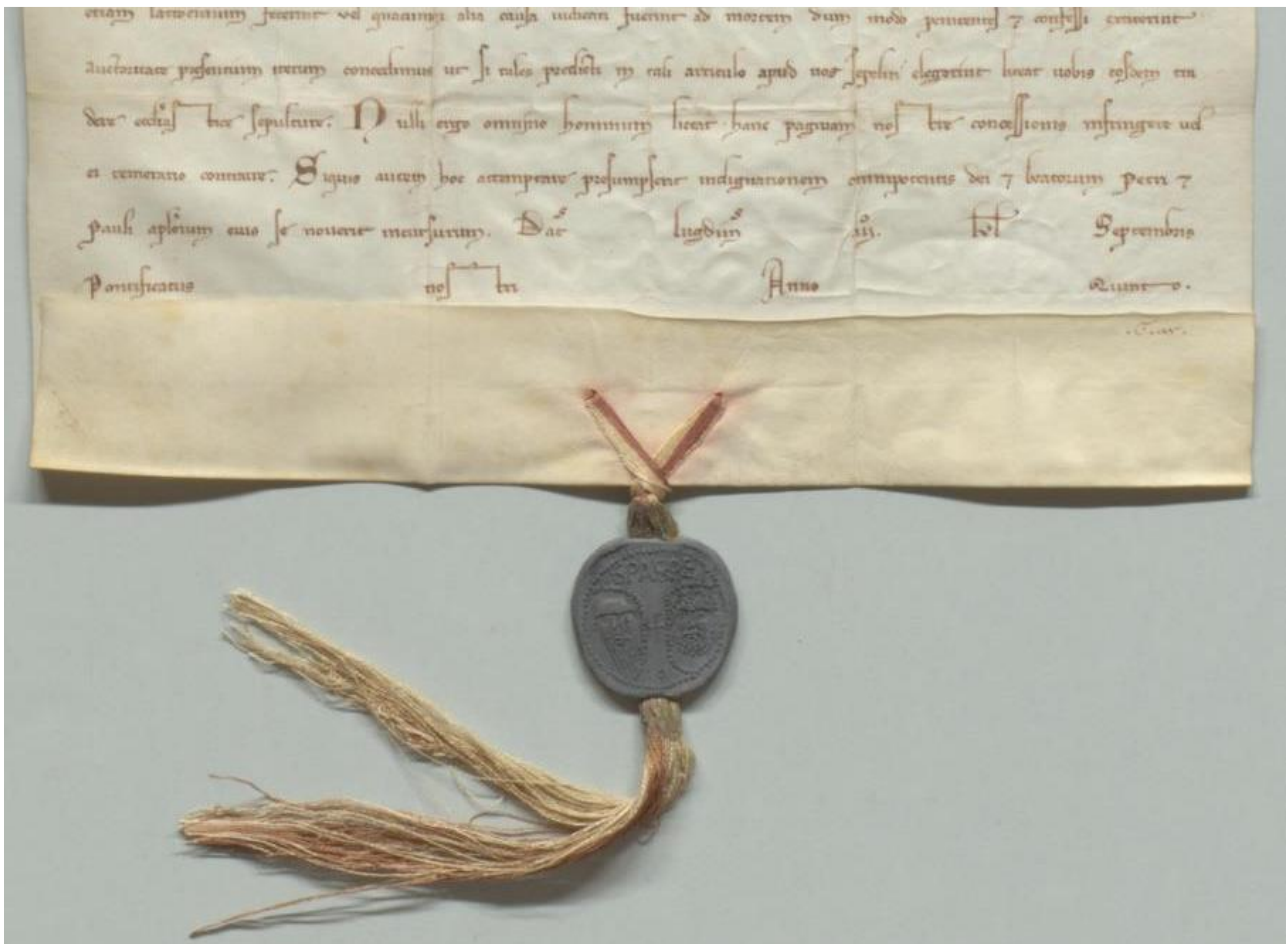 etiam latrocinium fecerint vel quacumque alia causa iudicati fuerint ad mortem dum modo penitentes ⁊ confessi
auctoritate presentium concedimus ut si tales predicti in tali articulo apud uos sepeliri elegerint liceat uobis eosdem tra
dere ecclastice sepulture. Nulli ergo omnino hominum liceat hanc paginam nostre concessionis infringere uel
ei temerario contraire. Siquis autem hoc attemptare presumpserit indignationem omnipotentis dei ⁊ beatorum Petri ⁊
Pauli aplorum eius se nouerit incursurum. Dat lugdun iii. kl Septembris
Pontificatus nostri Anno Quinto.
SPASPE